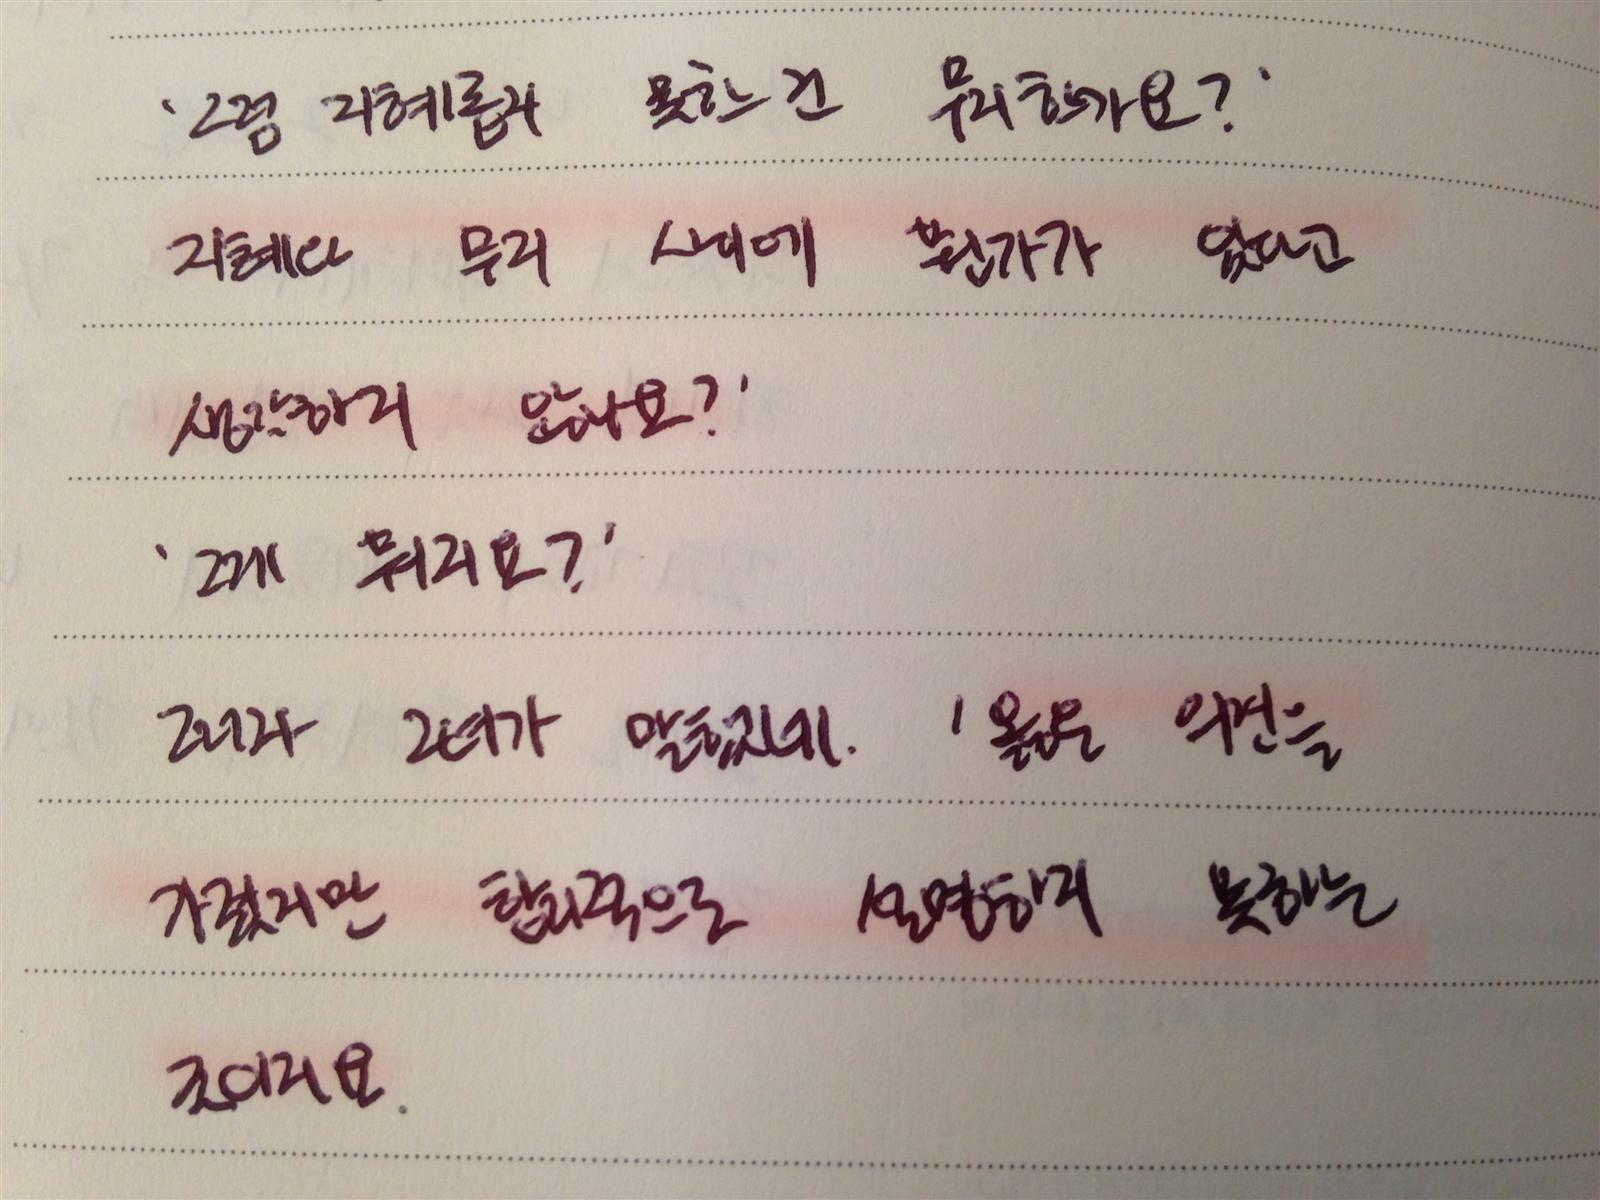 '그럼 지혜롭지 못하는 건 무지한가요?'
지혜와 무지 사이에 뭔가가 있다고
생각하지 않아요?'
'그게 뭐지요?'
그러자 그녀가 말했지네. '옳은 의견을
가졌지만 합리적으로 설명하지 못하는
것이지요.